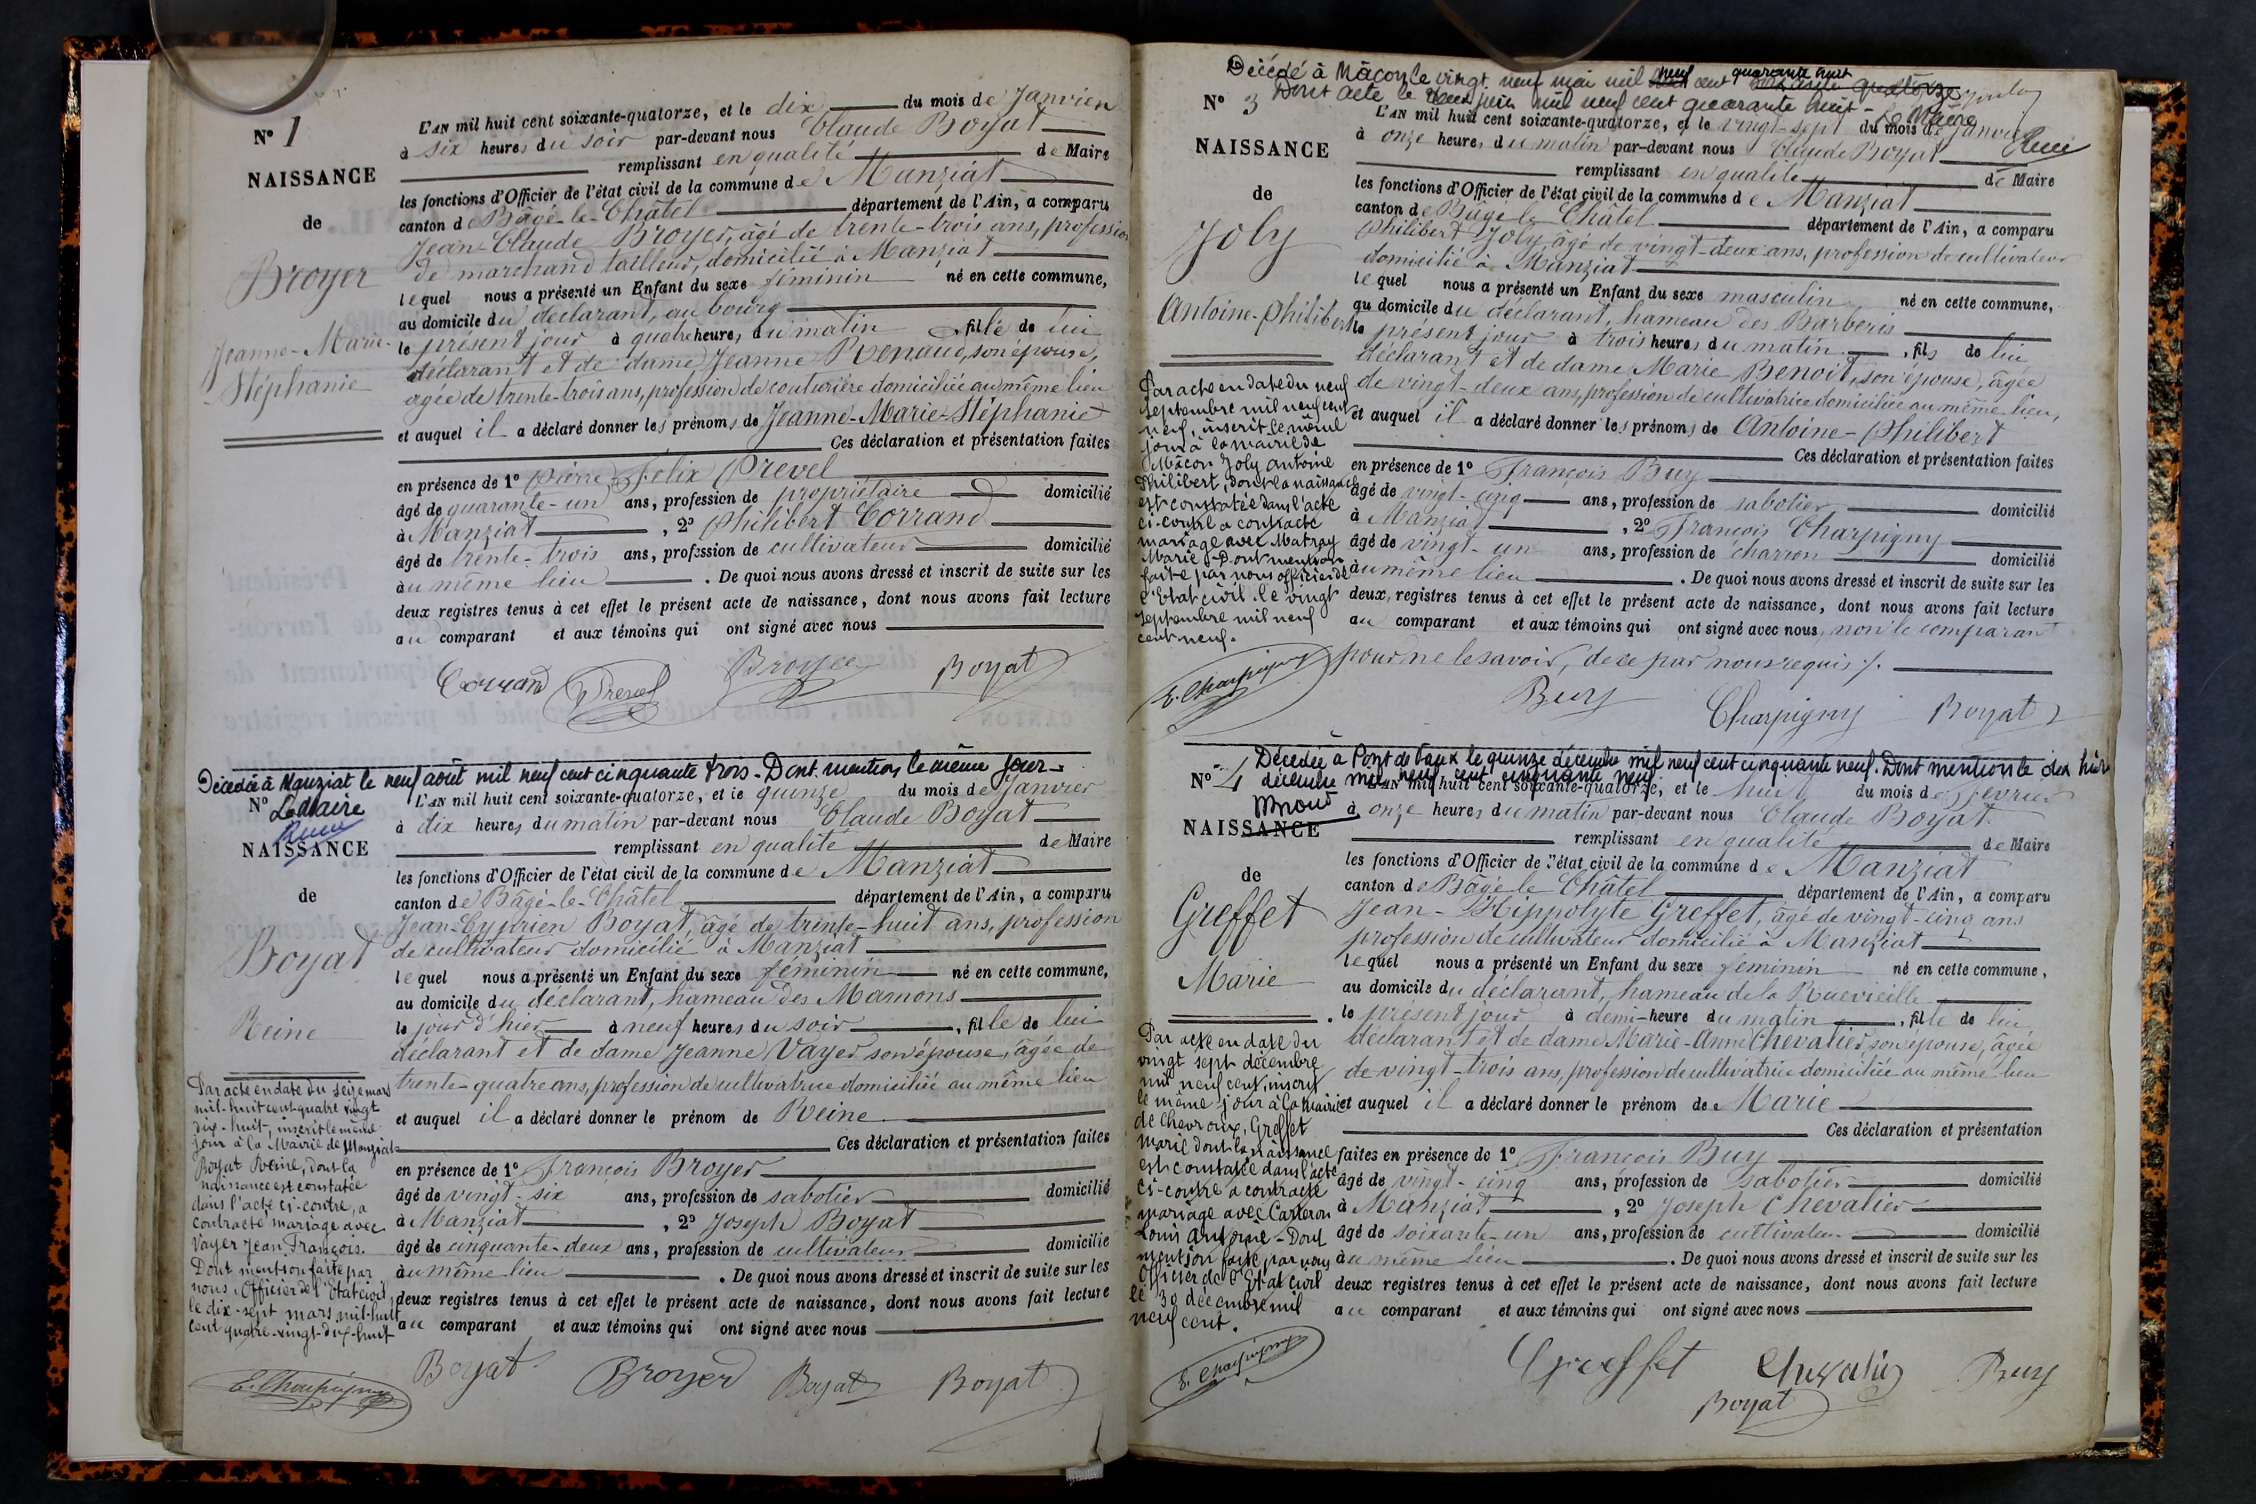 N° 1
NAISSANCE
de
Broyer
Jeanne-Marie-
Stéphanie
L'AN mil huit cent soixante-quatorze, et le dix du mois de Janvier
à six heures du soir par-devant nous Claude Boyat
remplissant en qualité de Maire
les fonctions d'Officier de l'état civil de la commune de Manziat
canton de Bâgé-le-Châtel département de l'Ain, a comparu
Jean-Claude Broyer, âgé de trente-trois ans, profession
de marchand tailleur, domicilié à Manziat
lequel nous a présenté un Enfant du sexe féminin né en cette commune,
au domicile du déclarant, au bourg
le présent jour à quatre heures, du matin fille de lui
déclarant et de dame Jeanne Renaud, son épouse,
âgée de trente-trois ans, profession de couturière domiciliée au même lieu
et auquel il a déclaré donner les prénoms de Jeanne-Marie-Stéphanie
Ces déclaration et présentation faites
en présence de 1° Pierre Félix Prevel
âgé de quarante-un ans, profession de propriétaire domicilié
à Manziat, 2° Philibert Corrand
âgé de trente-trois ans, profession de cultivateur domicilié
au même lieu. De quoi nous avons dressé et inscrit de suite sur les
deux registres tenus à cet effet le présent acte de naissance, dont nous avons fait lecture
au comparant et aux témoins qui ont signé avec nous
Corrand Prevel Broyer Boyat
Décédée à Manziat le neuf août mil neuf cent cinquante trois - Dont mention le même jour -
N° Le Maire
NAISSANCE
de
Boyat
Reine
Par acte en date du seize mars
mil-huit cent-quatre vingt
dix-huit, inscrit le même
jour à la Mairie de Manziat
Boyat Reine, dont la
naissance est constatée
dans l'acte ci-contre, a
contracté mariage avec
Vayer Jean François.
Dont mention faite par
nous, Officier de l'Etat civil,
le dix-sept mars mil-huit
cent quatre-vingt-dix-huit
E. Charpigny
L'AN mil huit cent soixante-quatorze, et le quinze du mois de Janvier
à dix heures du matin par-devant nous Claude Boyat
remplissant en qualité de Maire
les fonctions d'Officier de l'état civil de la commune de Manziat
canton de Bâgé-le-Châtel département de l'Ain, a comparu
Jean-Cyprien Boyat, âgé de trente-huit ans, profession
de cultivateur domicilié à Manziat
lequel nous a présenté un Enfant du sexe féminin né en cette commune,
au domicile du déclarant, hameau des Mamons
le jour d'hier à neuf heures du soir, fille de lui
déclarant et de dame Jeanne Vayer son épouse, âgée de
trente-quatre ans, profession de cultivatrice domiciliée au même lieu
et auquel il a déclaré donner le prénom de Reine
Ces déclaration et présentation faites
en présence de 1° François Broyer
âgé de vingt-six ans, profession de sabotier domicilié
à Manziat, 2° Joseph Boyat
âgé de cinquante-deux ans, profession de cultivateur domicilié
au même lieu. De quoi nous avons dressé et inscrit de suite sur les
deux registres tenus à cet effet le présent acte de naissance, dont nous avons fait lecture
au comparant et aux témoins qui ont signé avec nous
Boyat Broyer Boyat Boyat
Décédé à Mâcon le vingt neuf mai mil neuf cent quarante huit
Dont acte le deux juin mil neuf cent quarante huit - Le Maire
N° 3
NAISSANCE
de
Joly
Antoine-Philibert
Par acte en date du neuf
septembre mil neuf cent
neuf, inscrit le même
jour à la mairie de
Mâcon Joly Antoine
Philibert, dont la naissance
est constatée dans l'acte
ci-contre a contracté
mariage avec Matray
Marie - Dont mention
faite par nous officier de
l'Etat civil le vingt
septembre mil neuf
cent neuf.
E. Charpigny
L'AN mil huit cent soixante-quatorze, et le vingt-sept du mois de Janvier
à onze heures du matin par-devant nous Claude Boyat
remplissant en qualité de Maire
les fonctions d'Officier de l'état civil de la commune de Manziat
canton de Bâgé le Châtel département de l'Ain, a comparu
Philibert Joly, âgé de vingt-deux ans, profession de cultivateur
domicilié à Manziat
lequel nous a présenté un Enfant du sexe masculin né en cette commune,
au domicile du déclarant, hameau des Barberis
le présent jour à trois heures du matin, fils de lui
déclarant et de dame Marie Benoit, son épouse, âgée
de vingt-deux ans, profession de cultivatrice domiciliée au même lieu,
et auquel il a déclaré donner les prénoms de Antoine-Philibert
Ces déclaration et présentation faites
en présence de 1° François Buy
âgé de vingt-cinq ans, profession de sabotier domicilié
à Manziat, 2° François Charpigny
âgé de vingt-un ans, profession de charron domicilié
au même lieu. De quoi nous avons dressé et inscrit de suite sur les
deux registres tenus à cet effet le présent acte de naissance, dont nous avons fait lecture
au comparant et aux témoins qui ont signé avec nous, non le comparant
pour ne le savoir, de ce par nous requis ./.
Buy Charpigny Boyat
Décédée à Pont de Vaux le quinze décembre mil neuf cent cinquante neuf. Dont mention le dix huit
décembre mil neuf cent cinquante neuf
N° 4
NAISSANCE
de
Greffet
Marie
Par acte en date du
vingt sept décembre
mil neuf cent, inscrit
le même jour à la mairie
de Chevroux, Greffet
Marie dont la naissance
est constatée dans l'acte
ci-contre a contracté
mariage avec Carteron
Louis Antoine - Dont
mention faite par nous
Officier de l'Etat civil
le 30 décembre mil
neuf cent.
E. Charpigny
L'AN mil huit cent soixante-quatorze, et le huit du mois de Février
à onze heures du matin par-devant nous Claude Boyat
remplissant en qualité de Maire
les fonctions d'Officier de l'état civil de la commune de Manziat
canton de Bâgé le Châtel département de l'Ain, a comparu
Jean-Hippolyte Greffet, âgé de vingt-cinq ans
profession de cultivateur domicilié à Manziat
lequel nous a présenté un Enfant du sexe féminin né en cette commune,
au domicile du déclarant, hameau de la Ruevieille
le présent jour à demi-heure du matin, fille de lui
déclarant et de dame Marie-Anne Chevalier, son épouse, âgée
de vingt-trois ans, profession de cultivatrice domiciliée au même lieu
et auquel il a déclaré donner le prénom de Marie
Ces déclaration et présentation
faites en présence de 1° François Buy
âgé de vingt-cinq ans, profession de sabotier domicilié
à Manziat, 2° Joseph Chevalier
âgé de soixante-un ans, profession de cultivateur domicilié
au même lieu. De quoi nous avons dressé et inscrit de suite sur les
deux registres tenus à cet effet le présent acte de naissance, dont nous avons fait lecture
au comparant et aux témoins qui ont signé avec nous
Greffet Chevalier Buy
Boyat